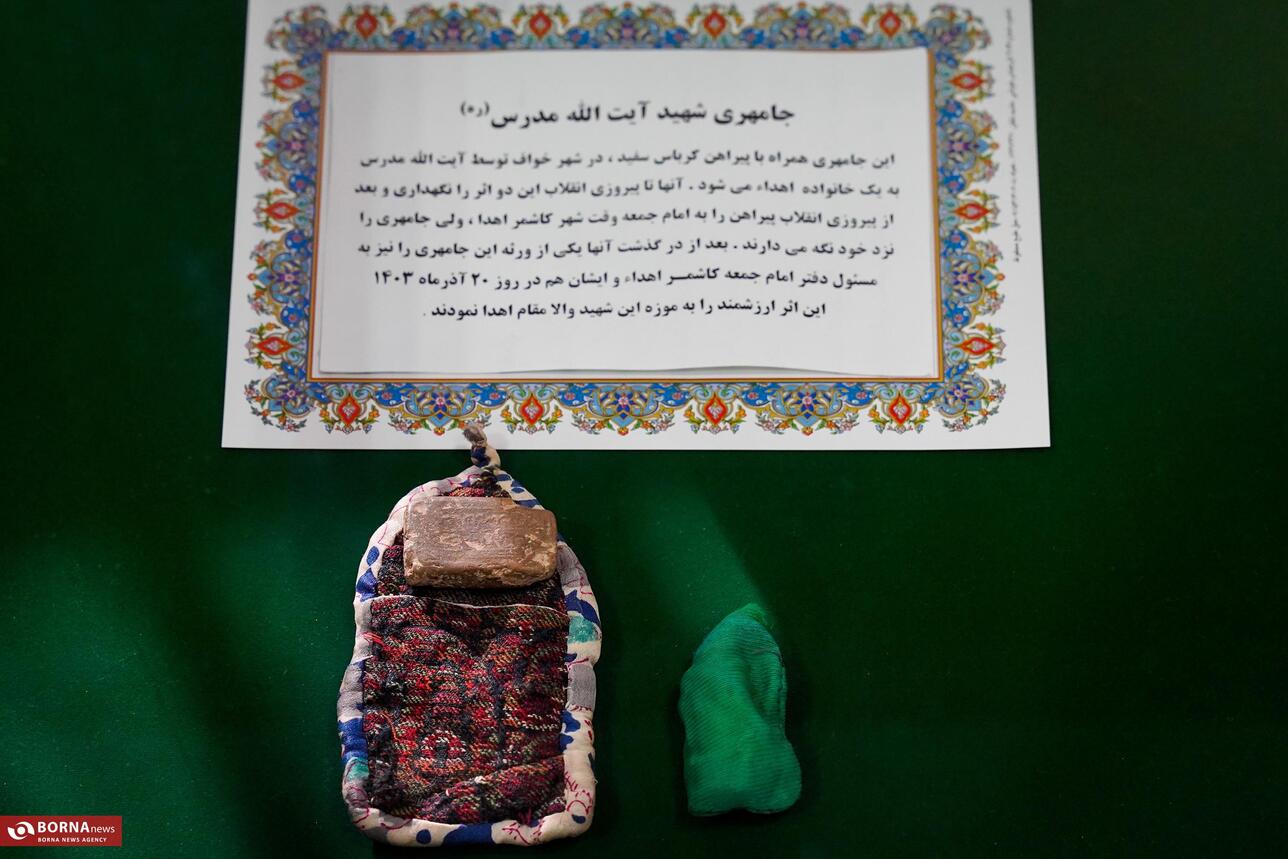 جامهری شهید آیت الله مدرس (ره)
این جامهری همراه با پیراهن کرباس سفید ، در شهر خواف توسط آیت الله مدرس
به یک خانواده اهداء می شود . آنها تا پیروزی انقلاب این دو اثر را نگهداری و بعد
از پیروزی انقلاب پیراهن را به امام جمعه وقت شهر کاشمر اهدا ، ولی جامهری را
نزد خود نگه می دارند . بعد از در گذشت آنها یکی از ورثه این جامهری را نیز به
مسئول دفتر امام جمعه کاشمر اهداء و ایشان هم در روز ۲۰ آذرماه ۱۴۰۳
این اثر ارزشمند را به موزه این شهید والا مقام اهدا نمودند .
BORNA news
BORNA NEWS AGENCY